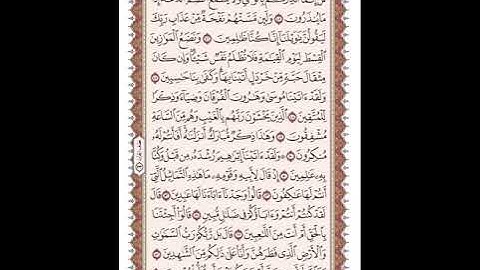 ما ينذرون ۝ ولئن مستهم نفحة من عذاب ربك
ليقولن يويلنا إنا كنا ظلمين ۝ ونضع الموازين
القسط ليوم القيمة فلا تظلم نفس شيئا وإن كان
مثقال حبة من خردل أتينا بها وكفى بنا حسبين ۝
ولقد ءاتينا موسى وهرون الفرقان وضياء وذكرا
للمتقين ۝ الذين يخشون ربهم بالغيب وهم من الساعة
مشفقون ۝ وهذا ذكر مبارك أنزلنه أفأنتم له
منكرون ۝ ولقد ءاتينا إبرهيم رشده من قبل وكنا
به علمين ۝ إذ قال لأبيه وقومه ما هذه التماثيل التي
أنتم لها عكفون ۝ قالوا وجدنا ءاباءنا لها عبدين ۝ قال
لقد كنتم أنتم وءاباؤكم في ضلل مبين ۝ قالوا أجئتنا
بالحق أم أنت من اللعبين ۝ قال بل ربكم رب السموت
والأرض الذي فطرهن وأنا على ذلكم من الشهدين ۝